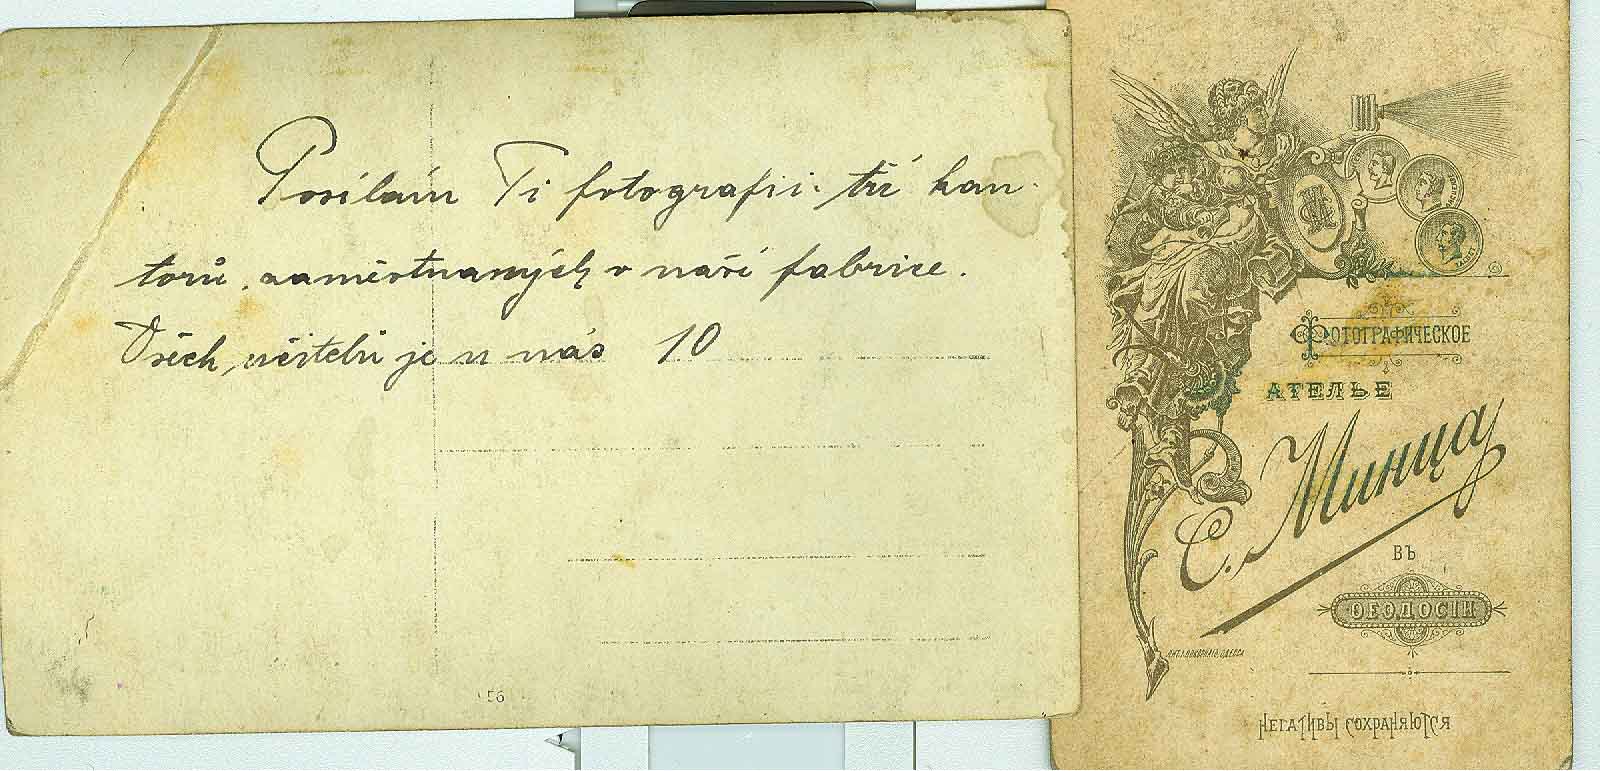 Posílám Ti fotografii tří kan-
torů, zaměstnaných v naší fabrice.
Všech učitelů je u nás 10
56
ФОТОГРАФИЧЕСКОЕ
АТЕЛЬЕ
С. Минца
ВЪ
ѲЕОДОСІИ
НЕГАТИВЫ СОХРАНЯЮТСЯ